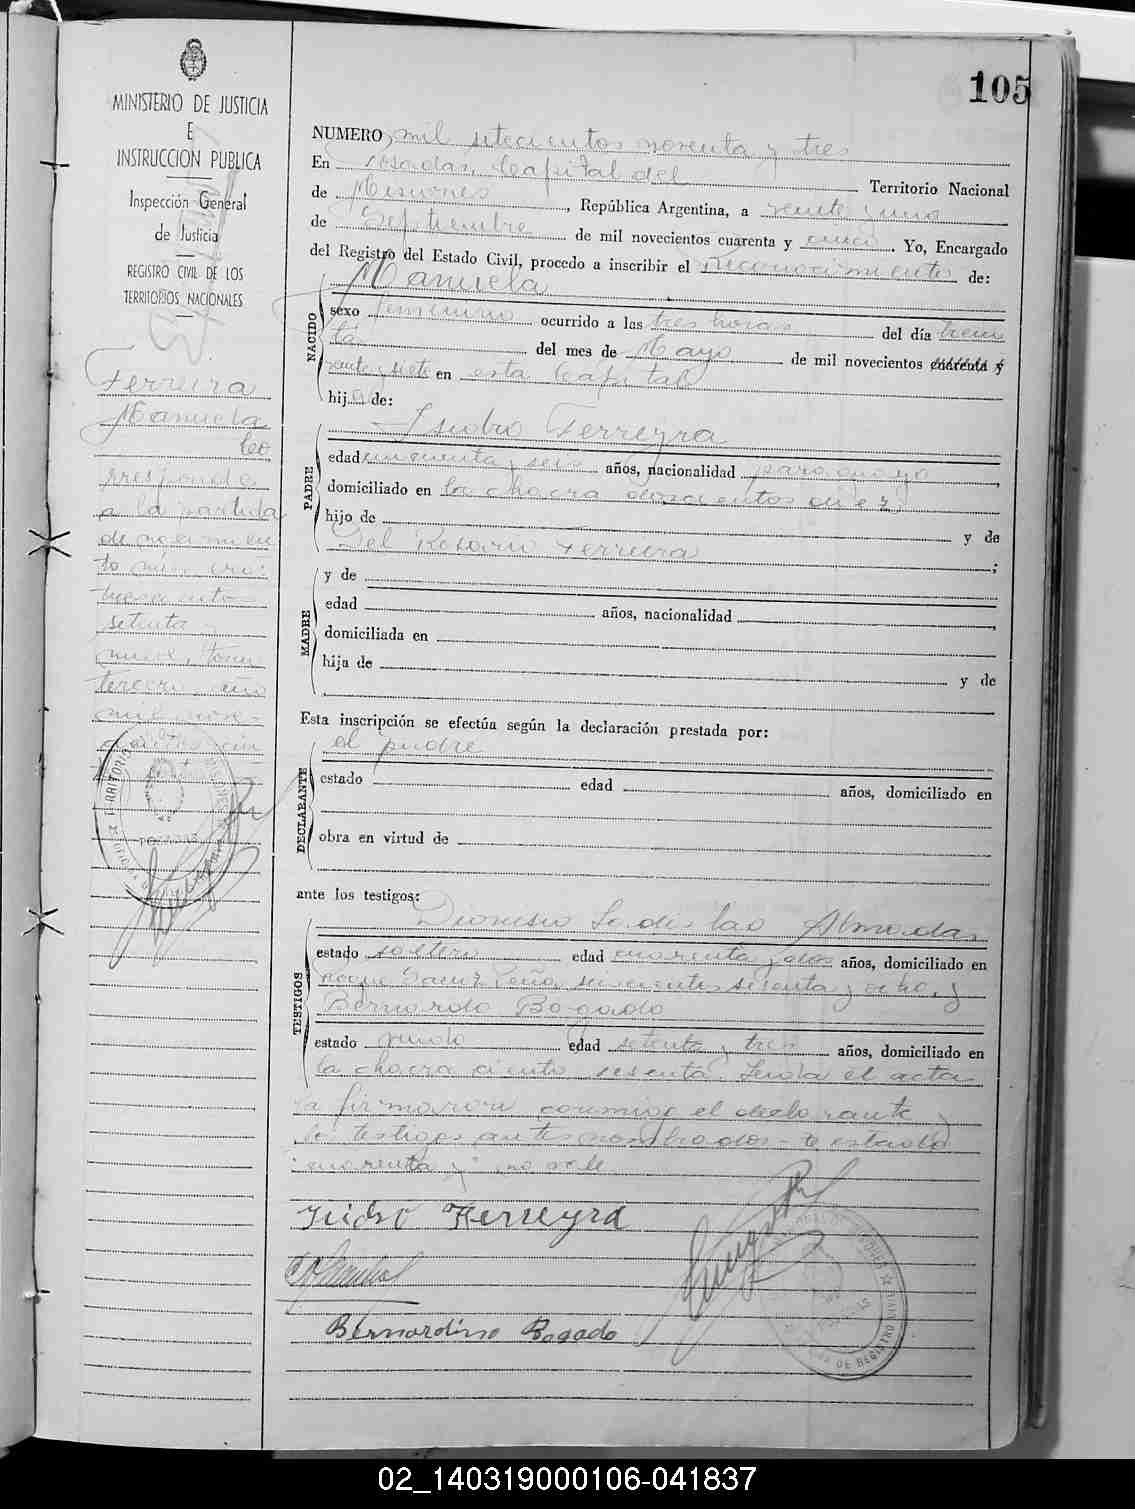 105
MINISTERIO DE JUSTICIA
E
INSTRUCCION PUBLICA
Inspección General
de Justicia
REGISTRO CIVIL DE LOS
TERRITORIOS NACIONALES
Ferreira
Manuela
Co
rresponde
a la partida
de nacimien
to número:
trescientos
setenta y
nueve, tomo
tercero, año
mil nove-
NUMERO mil setecientos noventa y tres
En Posadas, Capital del Territorio Nacional
de Misiones, República Argentina, a veinte y uno
de Septiembre de mil novecientos cuarenta y cinco. Yo, Encargado
del Registro del Estado Civil, procedo a inscribir el Reconocimiento de:
Manuela
NACIDO
sexo femenino ocurrido a las tres horas del día trein
ta del mes de Mayo de mil novecientos cuarenta y
veinte y siete en esta Capital
hija de:
Isidro Ferreyra
PADRE
edad cincuenta y seis años, nacionalidad paraguayo,
domiciliado en la chacra doscientos diez
hijo de y de
Del Rosario Ferreira;
MADRE
y de
edad años, nacionalidad,
domiciliada en
hija de y de
Esta inscripción se efectúa según la declaración prestada por:
el padre
DECLARANTE
estado edad años, domiciliado en
obra en virtud de
ante los testigos:
Dionisio Ladislao Almadas
TESTIGOS
estado soltero edad cuarenta y dos años, domiciliado en
Roque Saenz Peña, seiscientos sesenta y ocho, y
Bernardo Bogado
estado viudo edad setenta y tres años, domiciliado en
la chacra ciento sesenta. Leida el acta
la firmaron conmigo el declarante y
los testigos antes nombrados - testado
"cuarenta y" no vale
Isidro Ferreyra
Bernardino Bogado
02_140319000106-041837